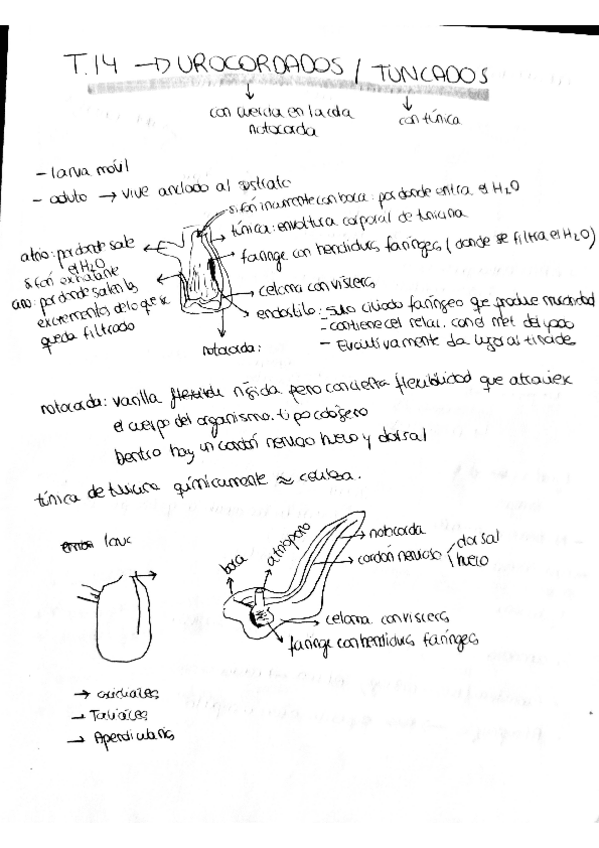 T.14 → UROCORDADOS / TUNICADOS
con cuerda en la cola
notocorda
con túnica
- larva móvil
- adulto → vive anclado al sustrato
sifón inhalante con boca: por donde entra el H2O
túnica: envoltura corporal de tunicina
atrio: por donde sale
el H2O
sifón exhalante
faringe con hendiduras faríngeas (donde se filtra el H2O)
ano: por donde salen los
excrementos de lo que se
queda filtrado
celoma con vísceras
endostilo: surco ciliado faríngeo que produce mucosidad
- contiene cel relac. con el met del yodo
- Evolutivamente da lugar al tiroides
notocorda:
notocorda: varilla rígida pero con cierta flexibilidad que atraviesa
el cuerpo del organismo. tipo colágeno
Dentro hay un cordón nervioso hueco y dorsal
túnica de tunicina químicamente ≈ celulosa.
larva
boca
atrioporo
notocorda
cordón nervioso
dorsal
hueco
celoma con vísceras
faringe con hendiduras faríngeas
→ ascidiáceas
→ Taliáceas
→ Apendicularias